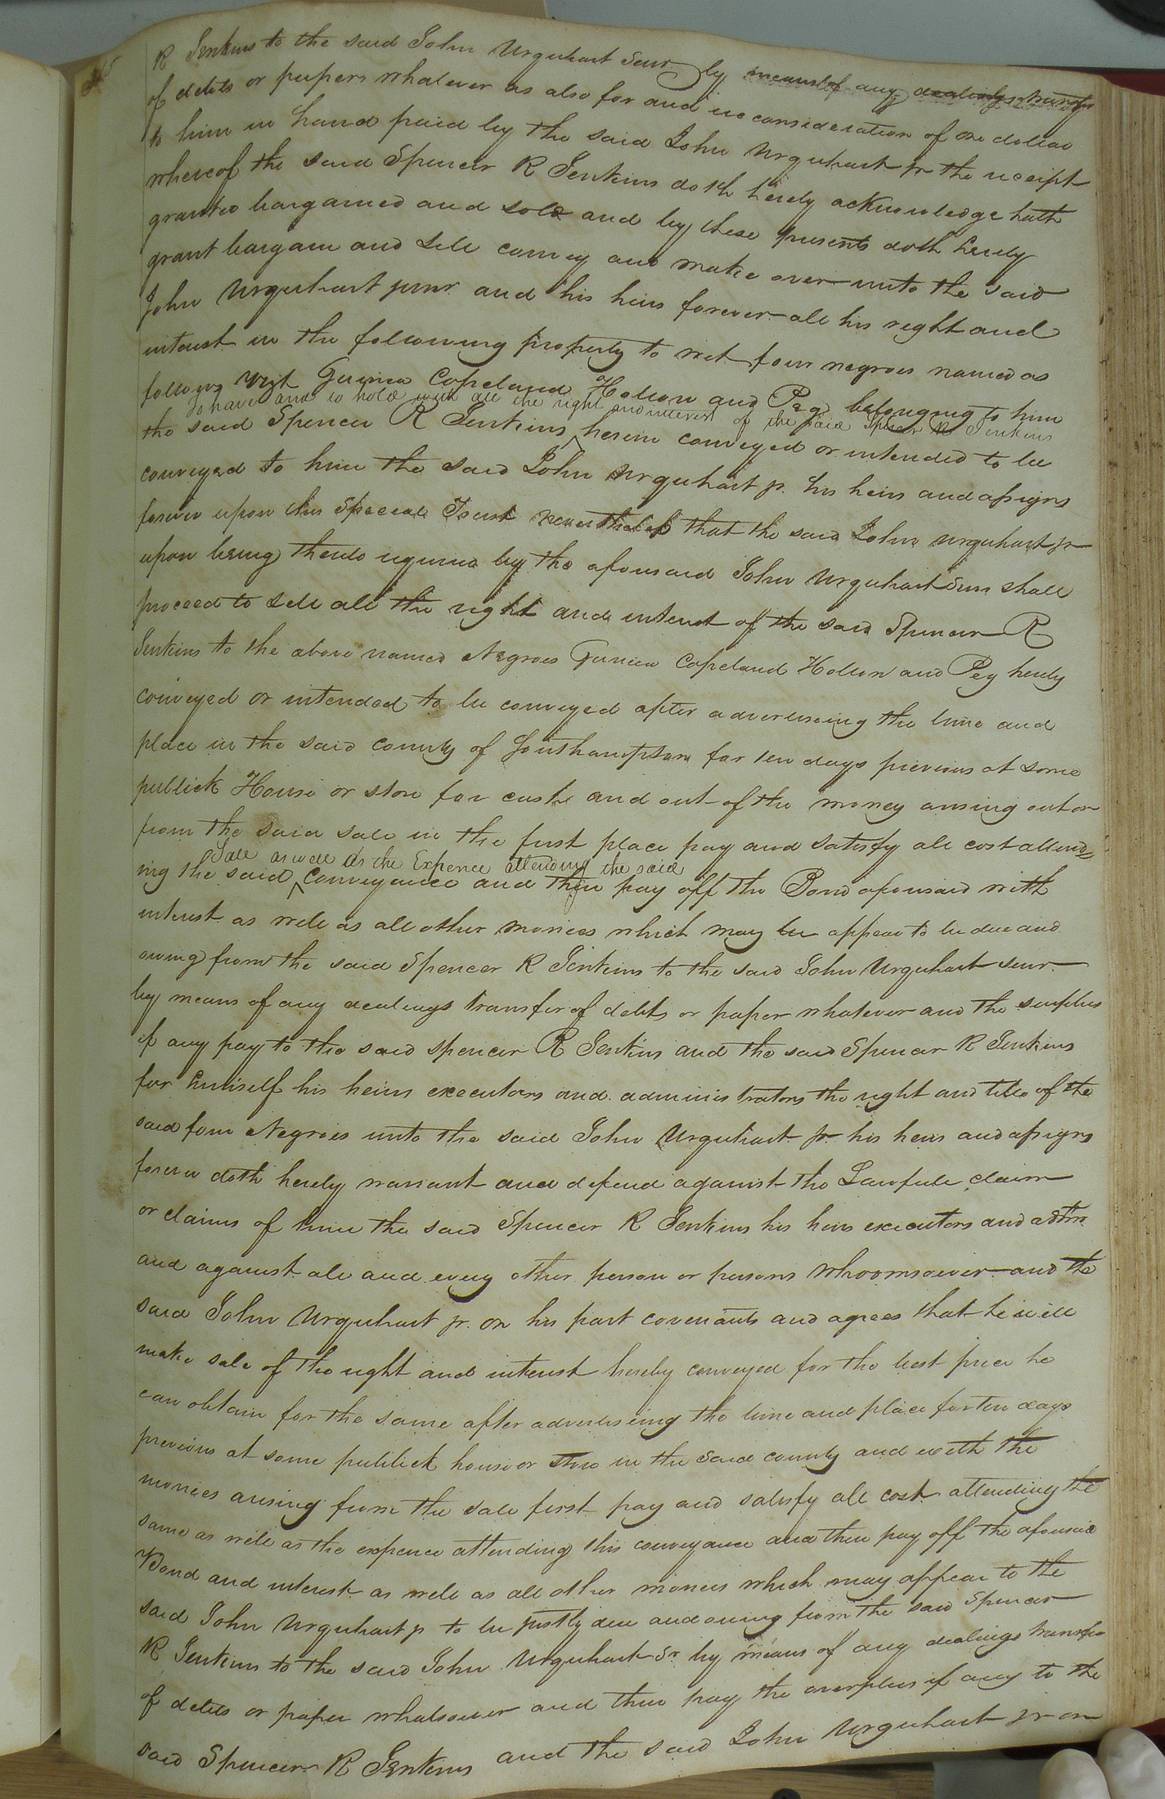 R Jenkins to the said John Urquhart Senr by means of any dealings transfer
of debts or papers whatever as also for and in consideration of one dollar
to him in hand paid by the said John Urquhart Jr the receipt
whereof the said Spencer R Jenkins doth hereby acknowledge hath
granted bargained and sold and by these presents doth hereby
grant bargain and sell convey and make over unto the said
John Urquhart junr and his heirs forever all his right and
interest in the following property to wit four negroes named as
following Copeland and Peg belonging to him
To have and to hold with all the right and interest of the said Spencer R Jenkins
the said Spencer R Jenkins ^ herein conveyed or intended to be
conveyed to him the said John Urquhart jr. his heirs and assigns
forever upon this Special Trust nevertheless that the said John Urquhart jr
upon being thereto required by the aforesaid John Urquhart Senr shall
proceed to sell all the right and interest of the said Spencer R
Jenkins to the above named Negroes Copeland and Peg hereby
conveyed or intended to be conveyed after advertising the time and
place in the said county of Southampton for ten days previous at some
publick House or store for cash and out of the money arising out or
from the said sale in the first place pay and satisfy all cost attend=
Sale as well as the Expence attending the said
ing the said ^ conveyance and then pay off the Bond aforesaid with
interest as well as all other monies which may be appear to be due and
owing from the said Spencer R Jenkins to the said John Urquhart senr.
by means of any dealings transfer of debts or paper whatever and the surplus
if any pay to the said Spencer R Jenkins and the said Spencer R Jenkins
for himself his heirs executors and administrators the right and title of the
said four Negroes unto the said John Urquhart jr his heirs and assigns
forever doth hereby warrant and defend against the Lawfull claim
or claims of him the said Spencer R Jenkins his heirs executors and admrs
and against all and every other person or persons whoomsoever and the
said John Urquhart jr. on his part covenants and agrees that he will
make sale of the right and interest hereby conveyed for the best price he
can obtain for the same after advertising the time and place for ten days
previous at some publick house or store in the said county and with the
monies arising from the sale first pay and satisfy all cost attending the
same as well as the expence attending this conveyance and then pay off the aforesaid
Bond and interest as well as all other monies which may appear to the
said John Urquhart jr to be justly due and owing from the said Spencer
R Jenkins to the said John Urquhart Sr by means of any dealings transfer
of debts or paper whatsoever and then pay the overplus if any to the
said Spencer R Jenkins and the said John Urquhart jr on